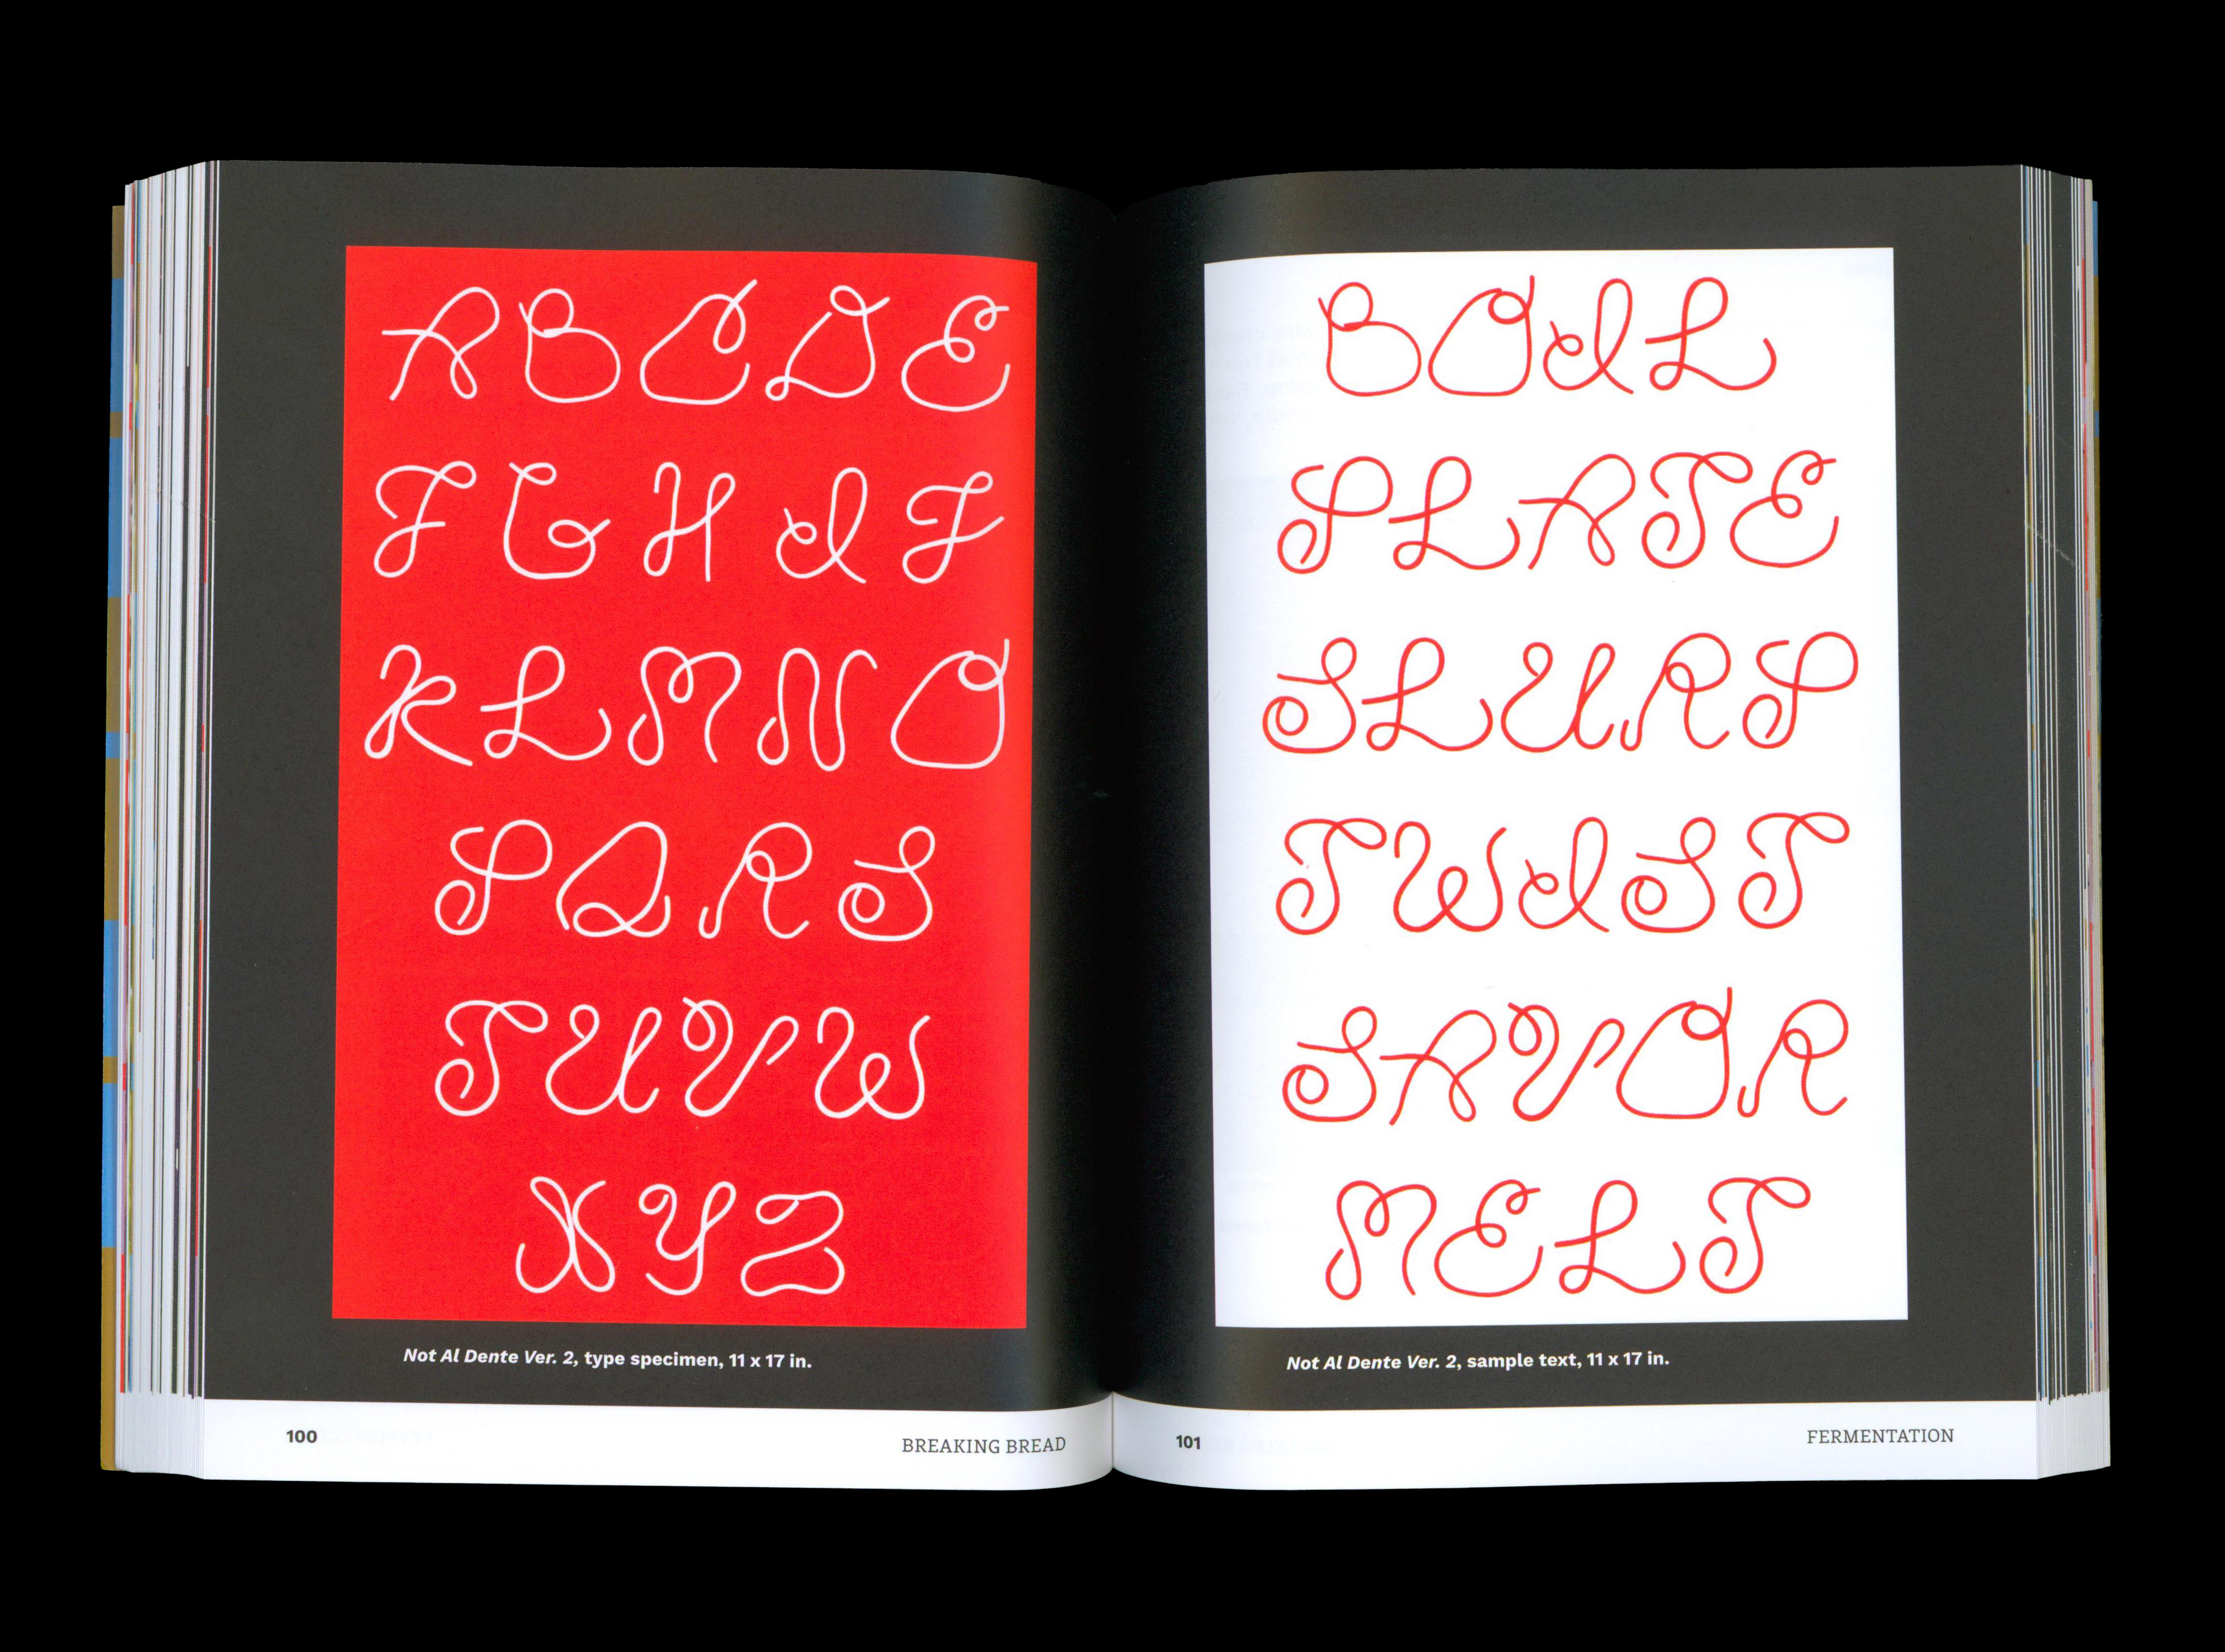 A B C D E
F G H I J
K L M N O
P Q R S
T U V W
X Y Z
Not Al Dente Ver. 2, type specimen, 11 x 17 in.
100
BREAKING BREAD
BOIL
PLATE
SLURP
TWIST
SAVOR
MELT
Not Al Dente Ver. 2, sample text, 11 x 17 in.
101
FERMENTATION